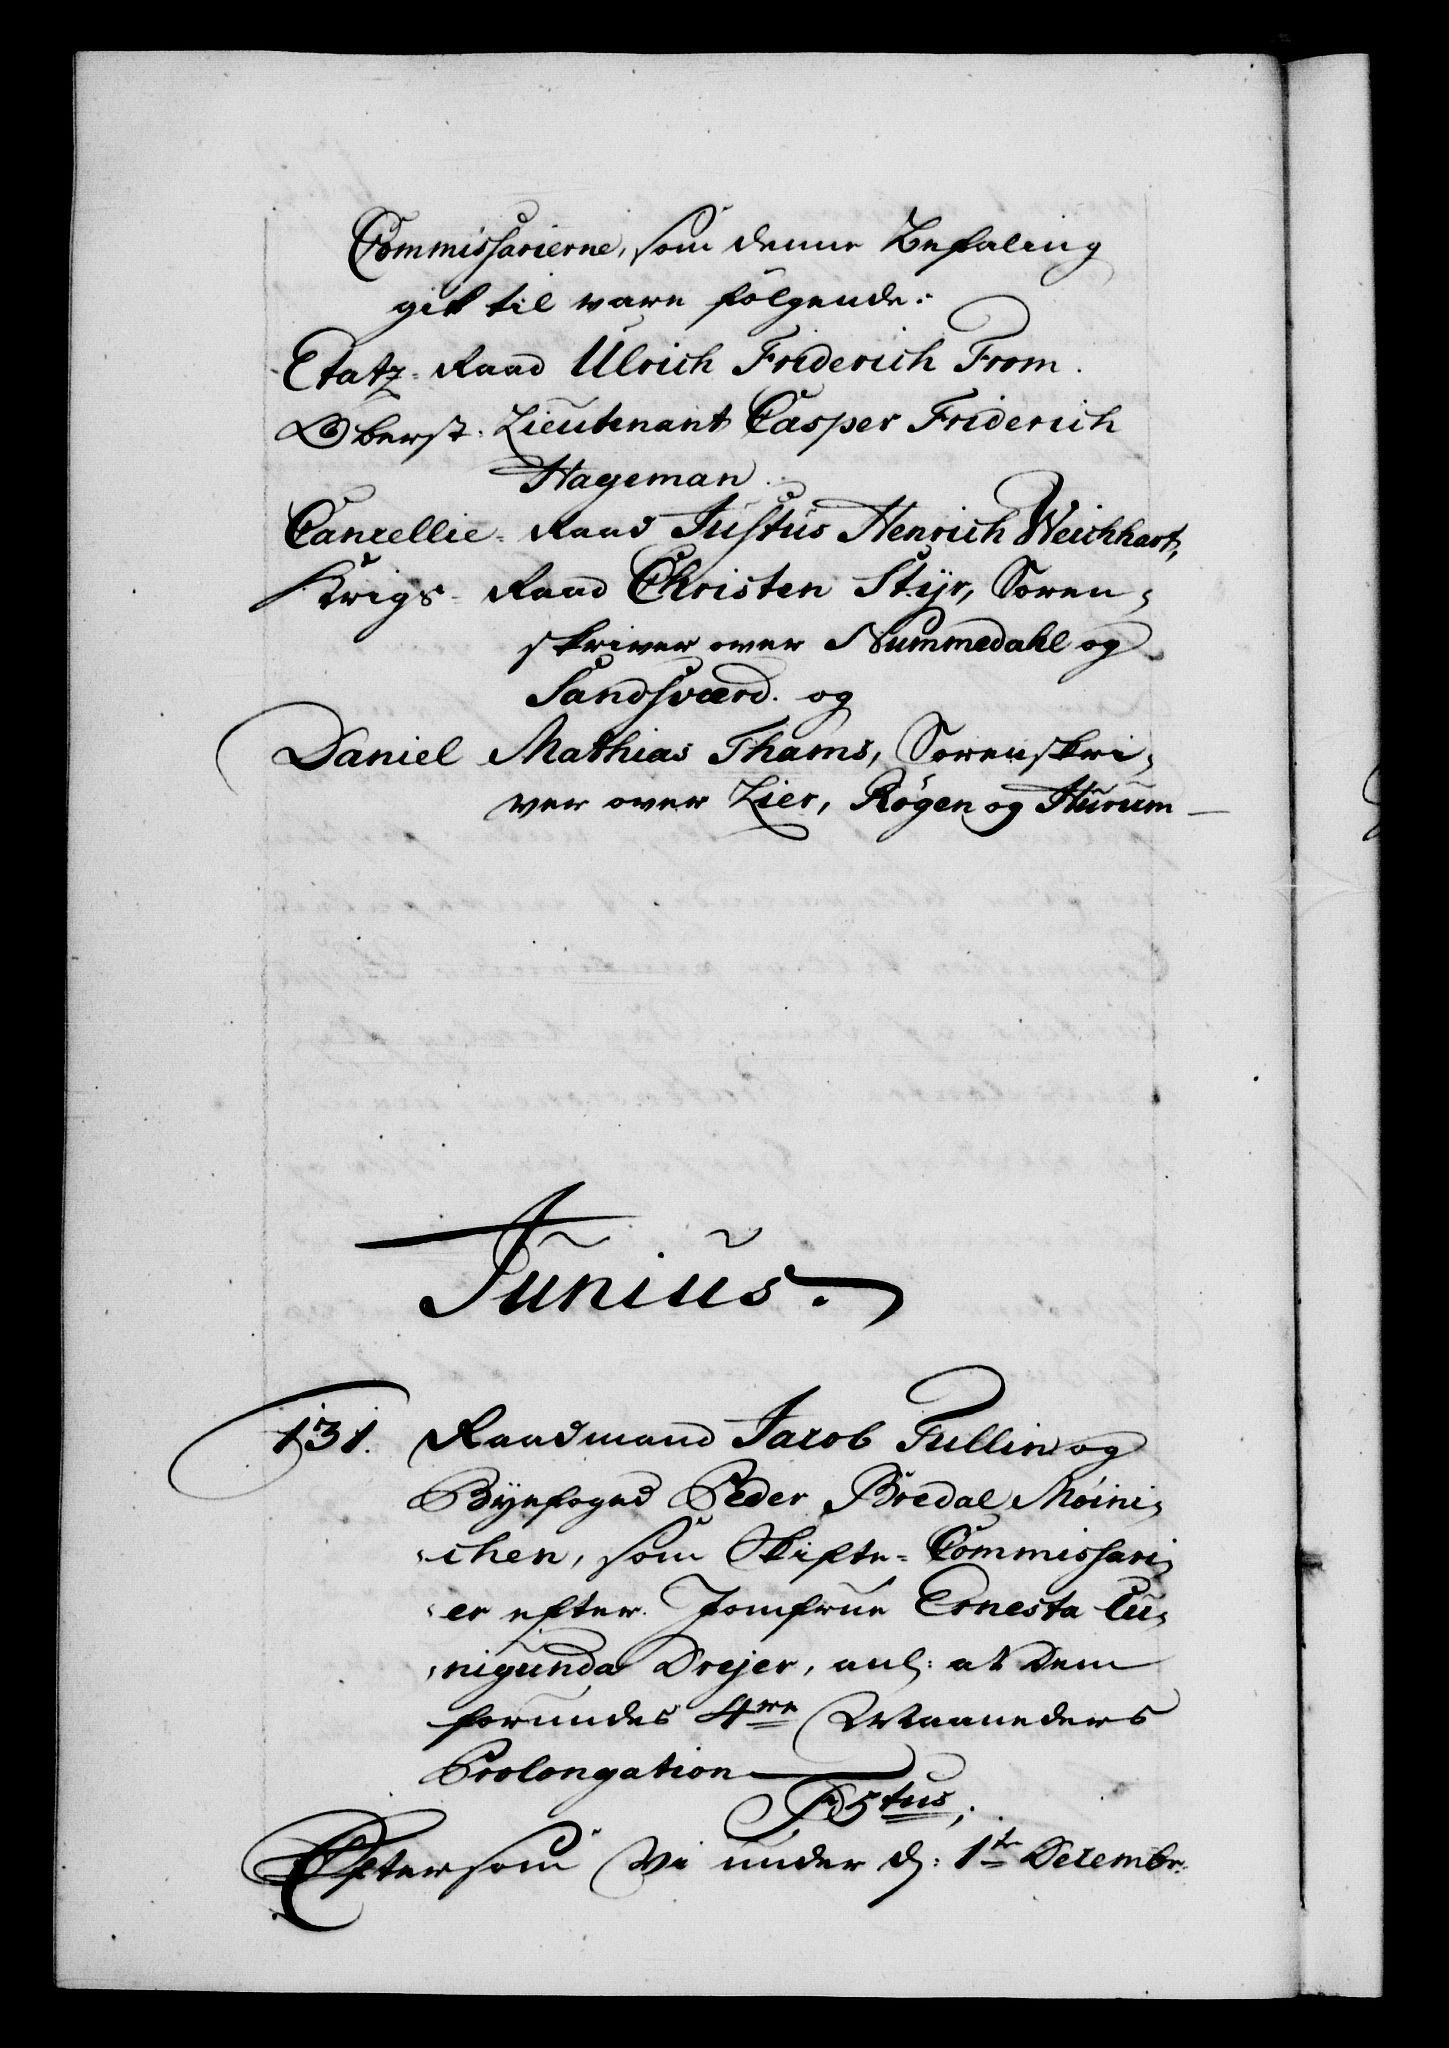 Commissarierne, som denne Befaling
gik til vare følgende:
Etatz-Raad Ulrich Friderich From.
Oberst-Lieutenant Casper Friderich
Hageman.
Cancellie-Raad Justus Henrich Weichhart,
Krigs-Raad Christen Styr, Soren-
skriver over Nummedahl og
Sandsværd. og
Daniel Mathias Thams, Sorenskri-
ver over Lier, Røgen og Hurum
Junius.
131. Raadmand Jacob Tullin og
Byefoged Peder Bredal Møini-
chen, som Skifte-Commissari-
er efter Jomfrue Ernesta Cu-
nigunda Drejer, anl: at Dem
forundes 4re Maaneders
Prolongation
F5tus;
Eftersom Vi under d: 1te Decembr: